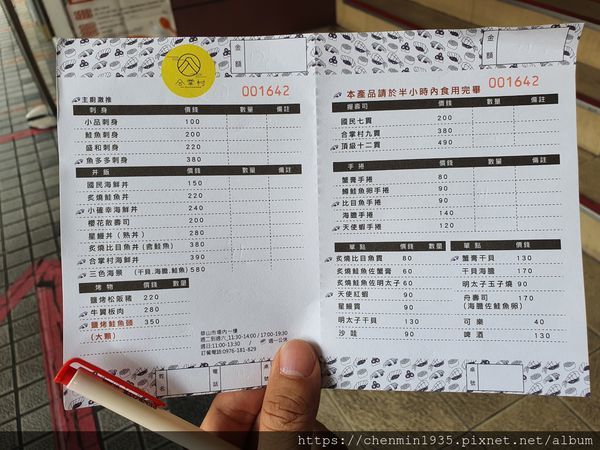 金額
合掌村
001642
主廚激推
刺身 價錢 數量 備註
小品刺身 100
鮭魚刺身 200
盛和刺身 220
魚多多刺身 380
丼飯 價錢 數量 備註
國民海鮮丼 150
炙燒鮭魚丼 220
小確幸海鮮丼 240
櫻花散壽司 200
星鰻丼(熟丼) 280
炙燒比目魚丼(含鮭魚) 380
合掌村海鮮丼 390
三色海景 (干貝.海膽.鮭魚) 580
烤物 價錢 數量
鹽烤松阪豬 220
牛翼板肉 280
鹽烤鮭魚頭 350
(大顆)
華山市場內一樓
週二到週六_11:30-14:00 / 17:00-19:30
週日:11:00-13:30 週一公休
訂餐電話:0976-181-829
姓名
電話
桌號
金額
001642
本產品請於半小時內食用完畢
握壽司 價錢 數量 備註
國民七貫 200
合掌村九貫 380
頂級十二貫 490
手捲 價錢 數量 備註
蟹膏手捲 80
鱒鮭魚卵手捲 90
比目魚手捲 90
海膽手捲 140
天使蝦手捲 120
單點 價錢 數量
炙燒比目魚貫 80
炙燒鮭魚佐蟹膏 60
炙燒鮭魚佐明太子 60
天使紅蝦 90
星鰻貫 90
明太子干貝 130
沙哇 90
單點 價錢 數量
蟹膏干貝 130
干貝海膽 170
明太子玉子燒 90
舟壽司 170
(海膽佐鮭魚卵)
可樂 40
啤酒 130
桌號
https://chenmin1935.pixnet.net/album